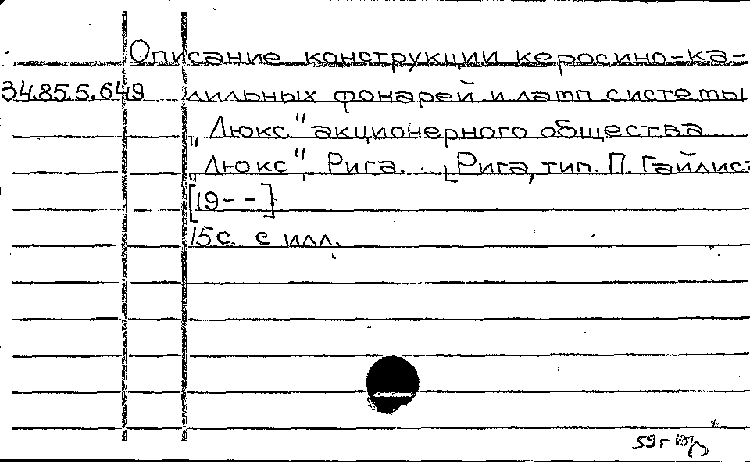 Описание конструкции керосино-ка-
34.85.5.649 лильных фонарей и ламп системы
„Люкс" акционерного общества
„Люкс", Рига. [Рига, тип. П. Гайлист
[19--]
15с. с илл.
59г